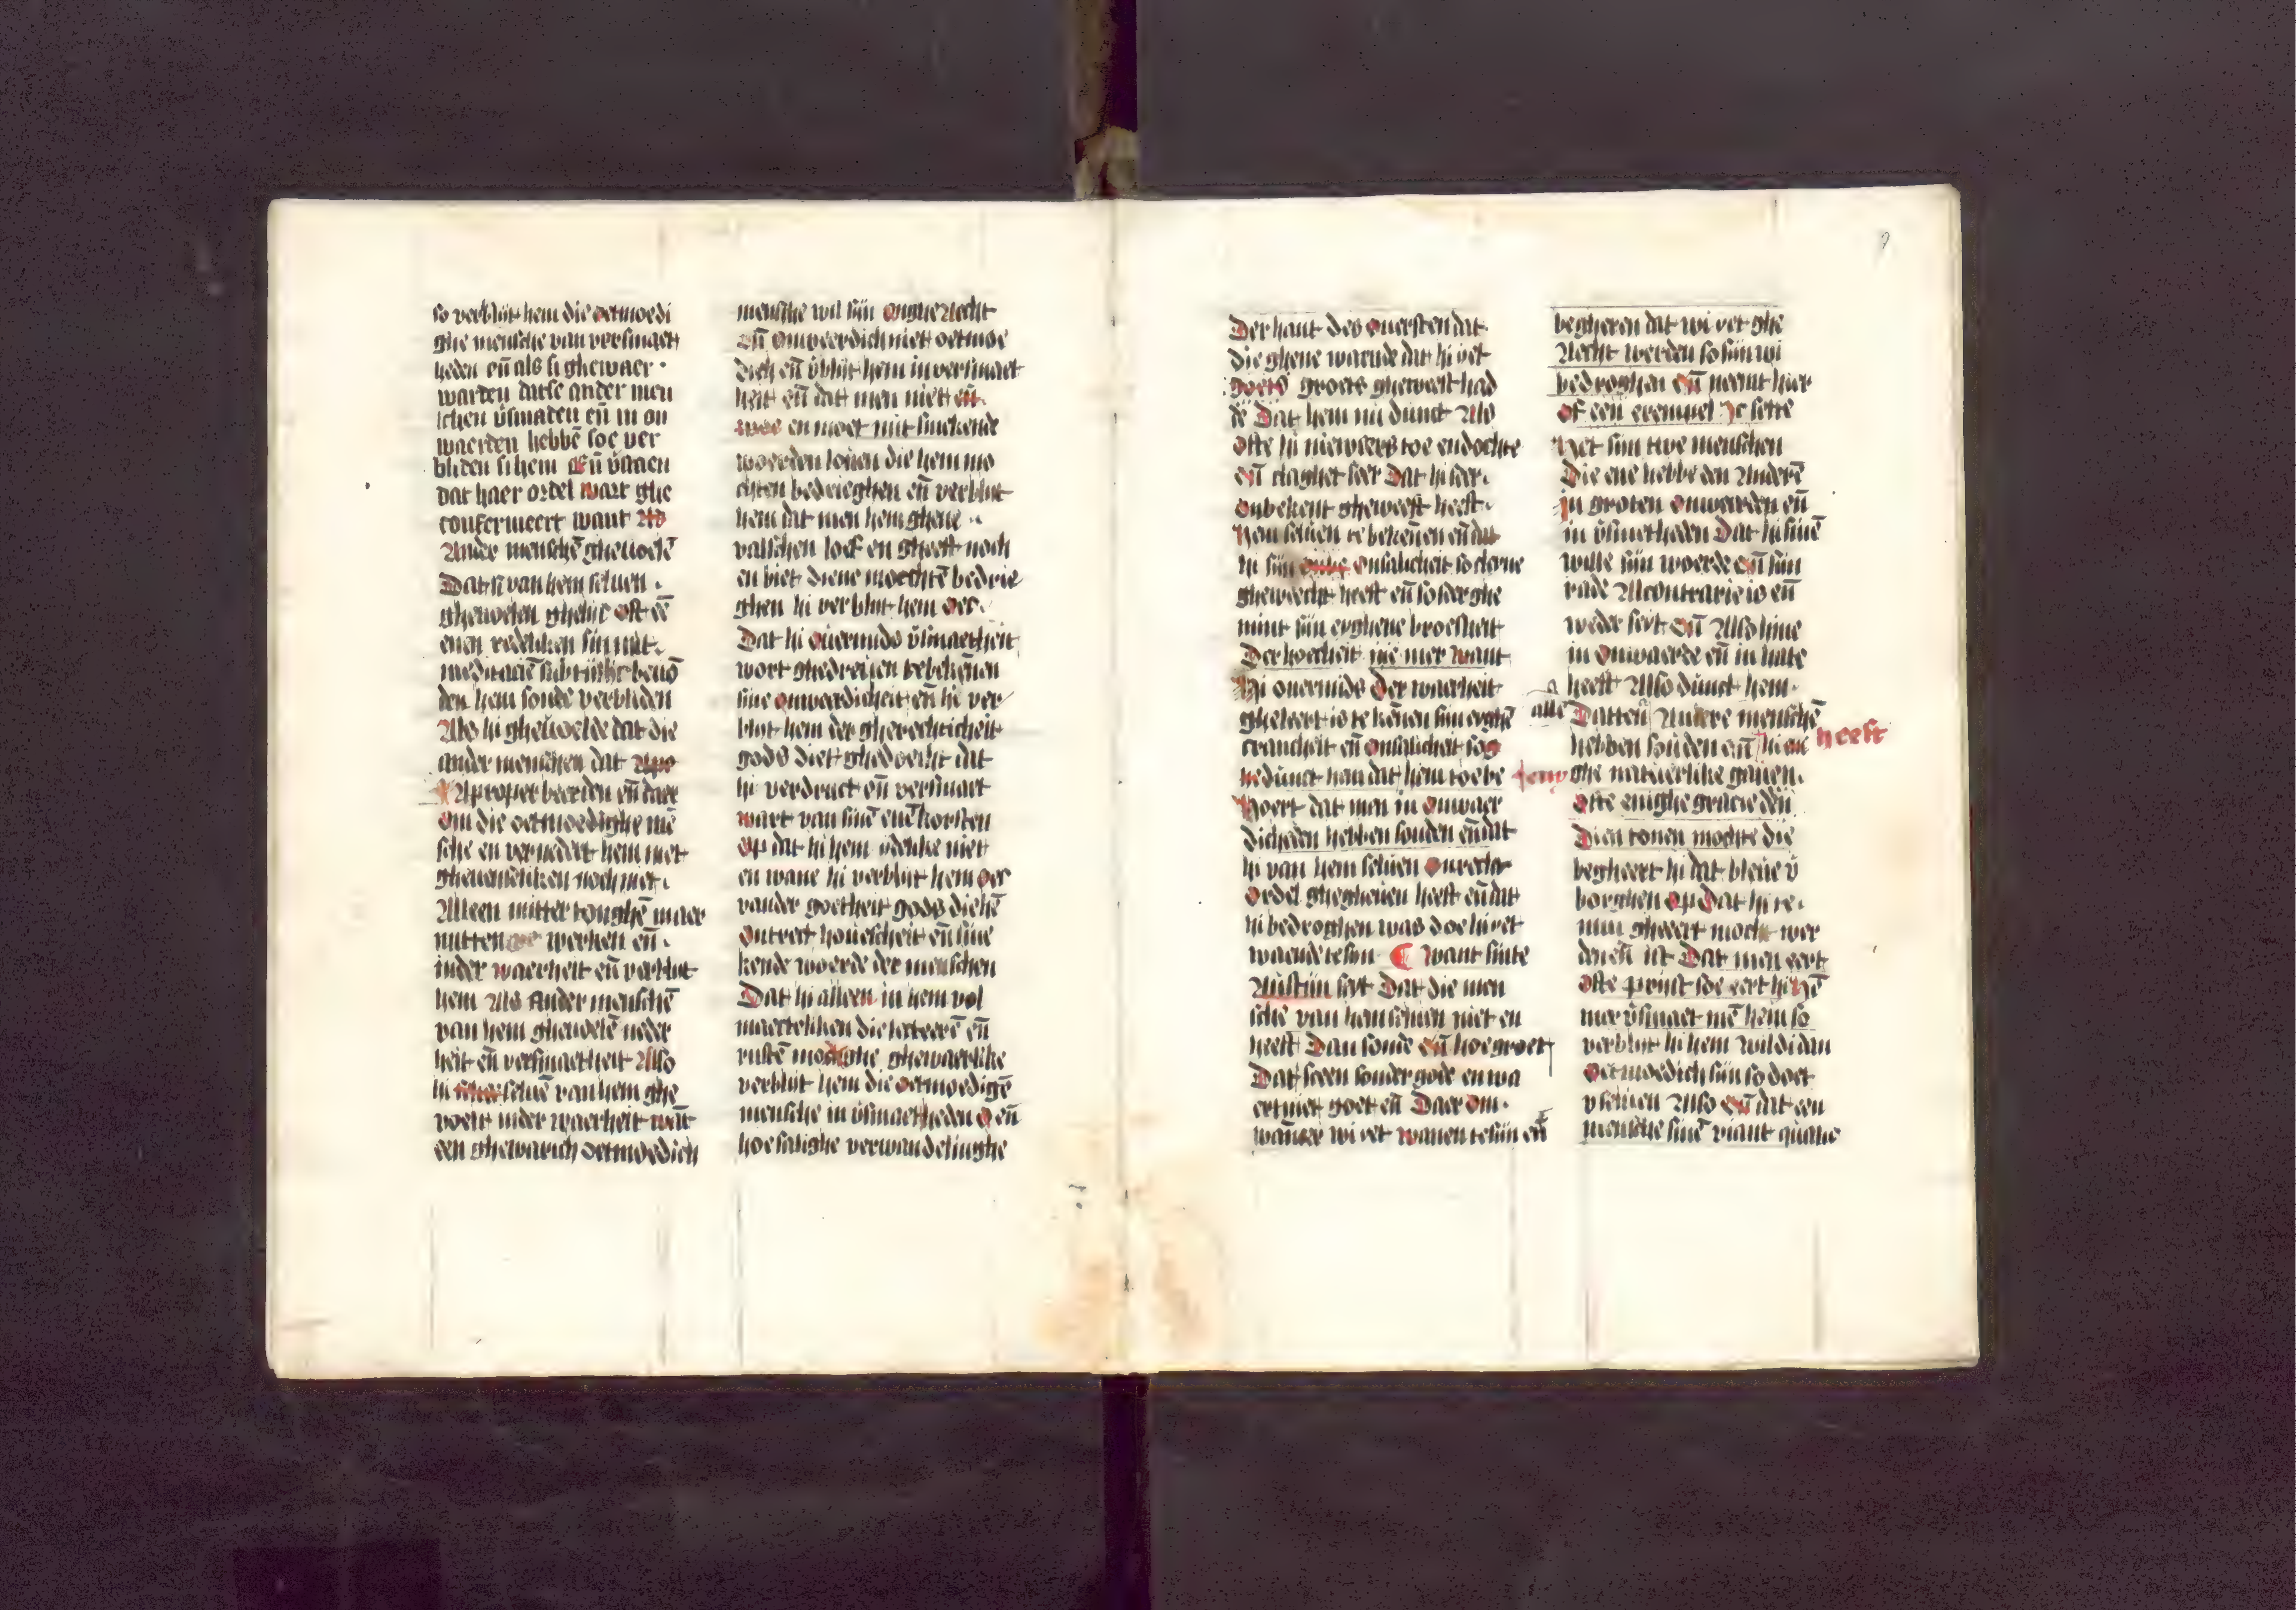 so verblijt hem die oetmoedi
ghe mensche van versmaet
heden eñ als si ghewaer
warden datse ander men
schen v̄smaden eñ in on
waerden hebbē soe ver
bliden si hem Eñ v̄staen
dat haer ordel wart ghe
confermeert want Als
Ander menschē gheuoelē
Dat si van hem seluen
gheuoelen ghelijc oft dē
enen redeliken sin mit
den hem sonde verbliden
Als hi gheuoelde dat die
ander menschen dat
Aproper beerden eñ daer
Om die oetmoedighe mē
sche en vernedert hem niet
gheueinsliken noch niet
Alleen mitter tonghē maer
mitten werken eñ
inder waerheit eñ verblijt
hem Als Ander menschē
van hem gheuoelē neder
heit eñ versmaetheit Also
hi seluē van hem ghe
voelt inder waerheit wāt
een ghewarich oetmoedich
mensche wil sijn Onghe Acht
Eñ Onweerdich niet oetmoe
dich eñ v̄blijt hem in versmaet
heit eñ dat men niet en
en moet mit smekende
woerden louen die hem mo
chten bedrieghen eñ verblijt
hem dat men hem ghene
valschen loef en gheeft noch
en biet diene moechtē bedrie
ghen hi verblijt hem Oec
Dat hi Ouermids v̄smaetheit
wort ghedreuen te bekēnen
sine Onweerdicheit eñ hi ver
blijt hem der gherechticheit
gods diet ghedoecht dat
hi verdruct eñ versmaet
wart van sinē euē korsten
Op dat hi hem ydelike niet
en wane hi verblijt hem Oec
vander goetheit gods die hē
Ontrect houescheit eñ sme
kende woerde der menschen
Dat hi alleen in hem vol
maecteliken die
rustē mochte ghewaerlike
verblijt hem die Oetmoedigē
mensche in v̄smaetheden O eñ
hoe salighe verwandelinghe
Der hant des Ouersten dat
die ghene waende dat hi yet
groets gheweest had
de Dat hem nu dunct Als
Ofte hi niewers toe en dochte
eñ claghet seer Dat hi seer
Onbekent gheweest heeft
hem seluen te bekennen eñ dat
hi sijn onsalicheit so clene
ghewecht heeft eñ so seer ghe
mint sijn eyghene broesheit
Der hoecheit nie mer want
Hi ouermids Der waerheit
gheleert is te kēnen sijn eyghē
crancheit eñ onsalicheit so
hem dat hem toebe
hoert dat men in Onwaer
dicheden hebben souden eñ dat
hi van hem seluen Onrecht
Ordel ghegheuen heeft eñ dat
hi bedroghen was doe hi yet
waende te sijn ¶ want sinte
Austijn seyt Dat die men
sche van hem seluen niet en
heeft Dan sonde eñ hoe groet
Dat sceen sonder gode en wa
ert niet goet eñ Daer om
wanneer wi yet wanen te sijn eñ
begheren dat wi yet ghe
Acht werden so sijn wi
bedroghen eñ neemt hier
Of een exempel Ic sette
Het sijn twe menschen
Die ene hebbe den Anderē
In groten Onwarden eñ
in v̄smetheden Dat hi sinē
wille sijn woerde eñ sijn
rade Al contrarie is eñ
weder seyt eñ Also hine
in Onwaerde eñ in hate
heeft Also dunct hem
alle Datten Andere menschē
hebben souden eñ hi eni heeft
ghe natuerlike gauen
Ofte enighe gracie
Dien tonen mochte die
begheert hi dat bleue v̄
borghen Op dat hi te
min gheeert mocht wer
den eñ ist Dat men eert
Ofte prijst soe eert hi hē
mer v̄smaet mē hem so
verblijt hi hem wildi dan
Oetmoedich sijn so doet
v seluen Also eñ dat een
mensche sinē viant